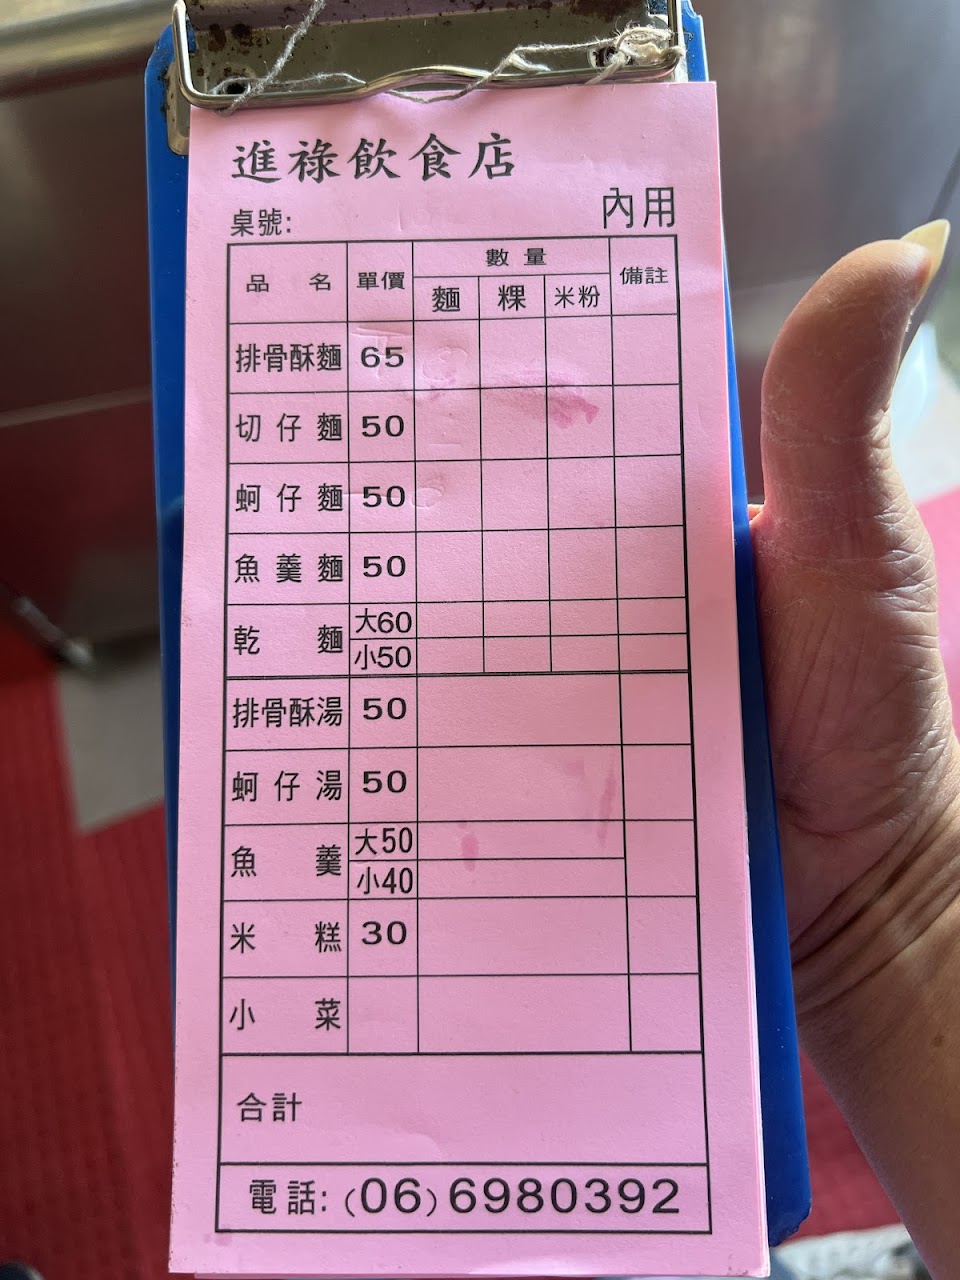 進祿飲食店
桌號:
內用
品名 單價 數量 備註
麵 粿 米粉
排骨酥麵 65
切仔麵 50
蚵仔麵 50
魚羹麵 50
乾麵 大60
小50
排骨酥湯 50
蚵仔湯 50
魚羹 大50
小40
米糕 30
小菜
合計
電話:(06)6980392